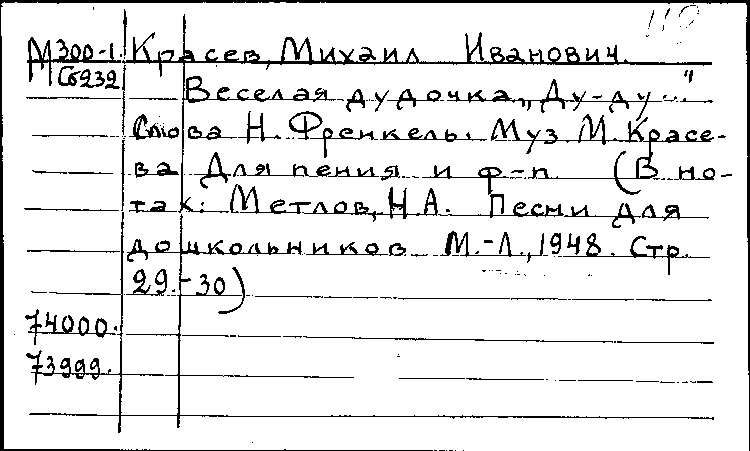 М300-1. Красев, Михаил Иванович.
Сб232
Веселая дудочка „Ду-ду..."
Слова Н. Френкель. Муз. М. Красе-
ва Для пения и ф-п (В но-
тах: Метлов, Н.А. Песни для
дошкольников М.-Л., 1948. Стр.
29-30)
74000.
73999.